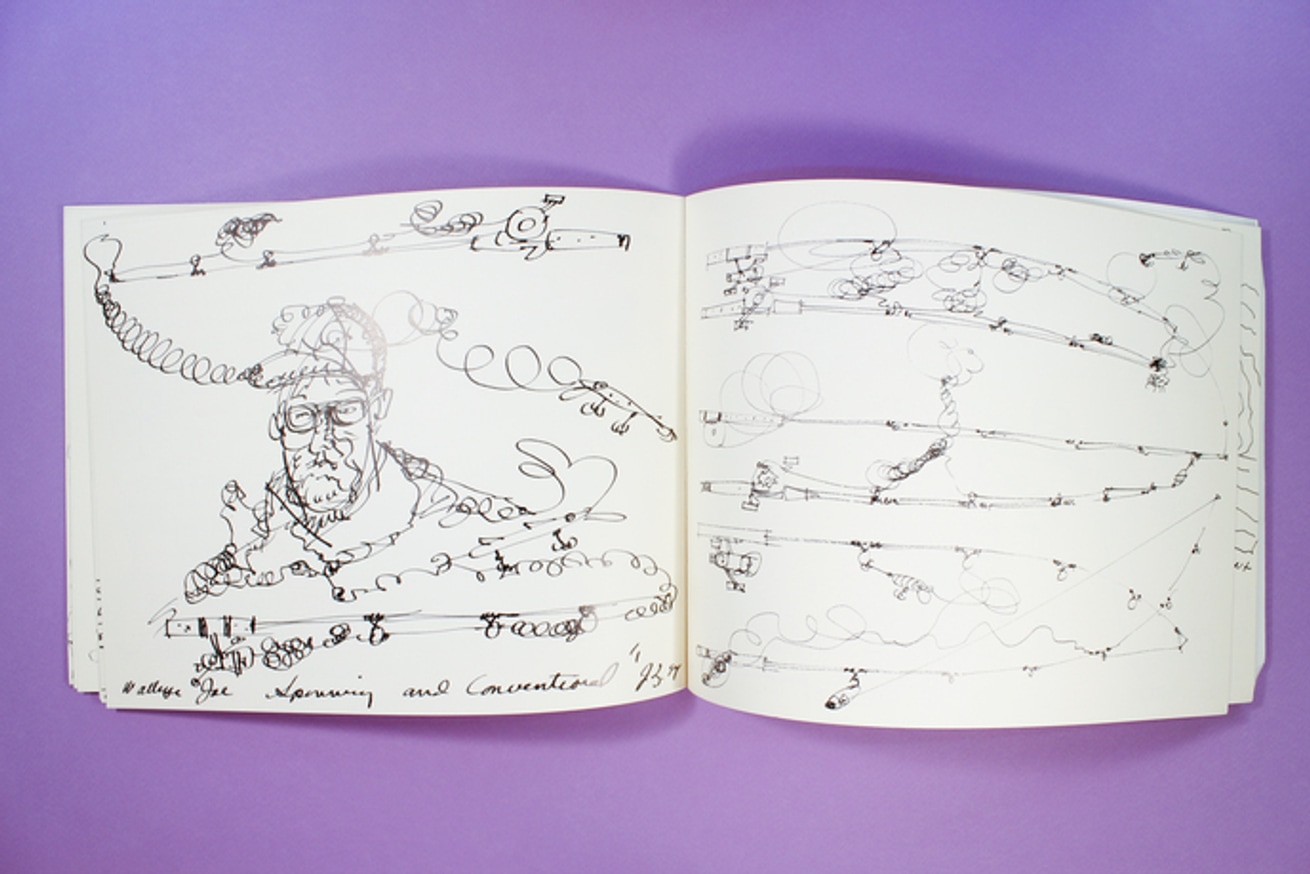 Walleye "Joe Spinning and Conventional"